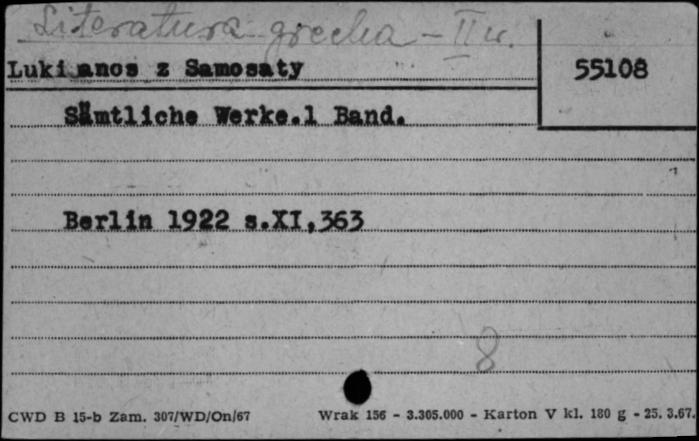 Literatura grecka - II w.
Lukianos z Samosaty
55108
Sämtliche Werke.1 Band.
Berlin 1922 s.XI,363
8
CWD B 15-b Zam. 307/WD/On/67 Wrak 156 - 3.305.000 - Karton V kl. 180 g - 25. 3.67.